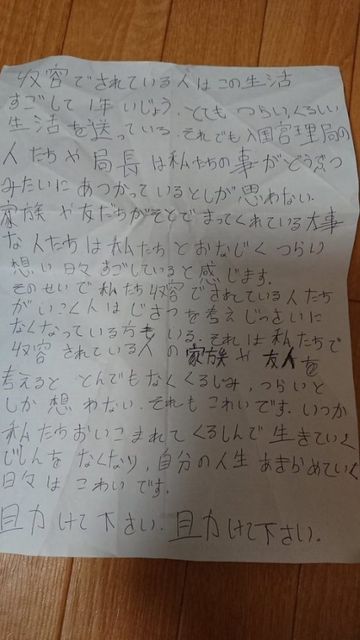 収容でされている人はこの生活
すごして1年いじょう、とてもつらい、くるしい
生活を送っている。それでも入国官理局の
人たちや局長は私たちの事がどうぶつ
みたいにあつかっているとしが思わない。
家族や友だちがそとでまってくれている大事
な人たちは私たちとおなじくつらい
想い日々すごしていると感じます。
そのせいで私たち収容でされている人たち
がいこく人はじさつを考えじっさいに
なくなっている方もいる。それは私たちで
収容されている人の家族や友人を
考えるととんでもなくくるしみ、つらいと
しか想わない。それもこわいです。いつか
私たちおいこまれてくるしんで生きていく
じしんをなくなり、自分の人生あきらめていく
日々はこわいです。
助けて下さい。助けて下さい。